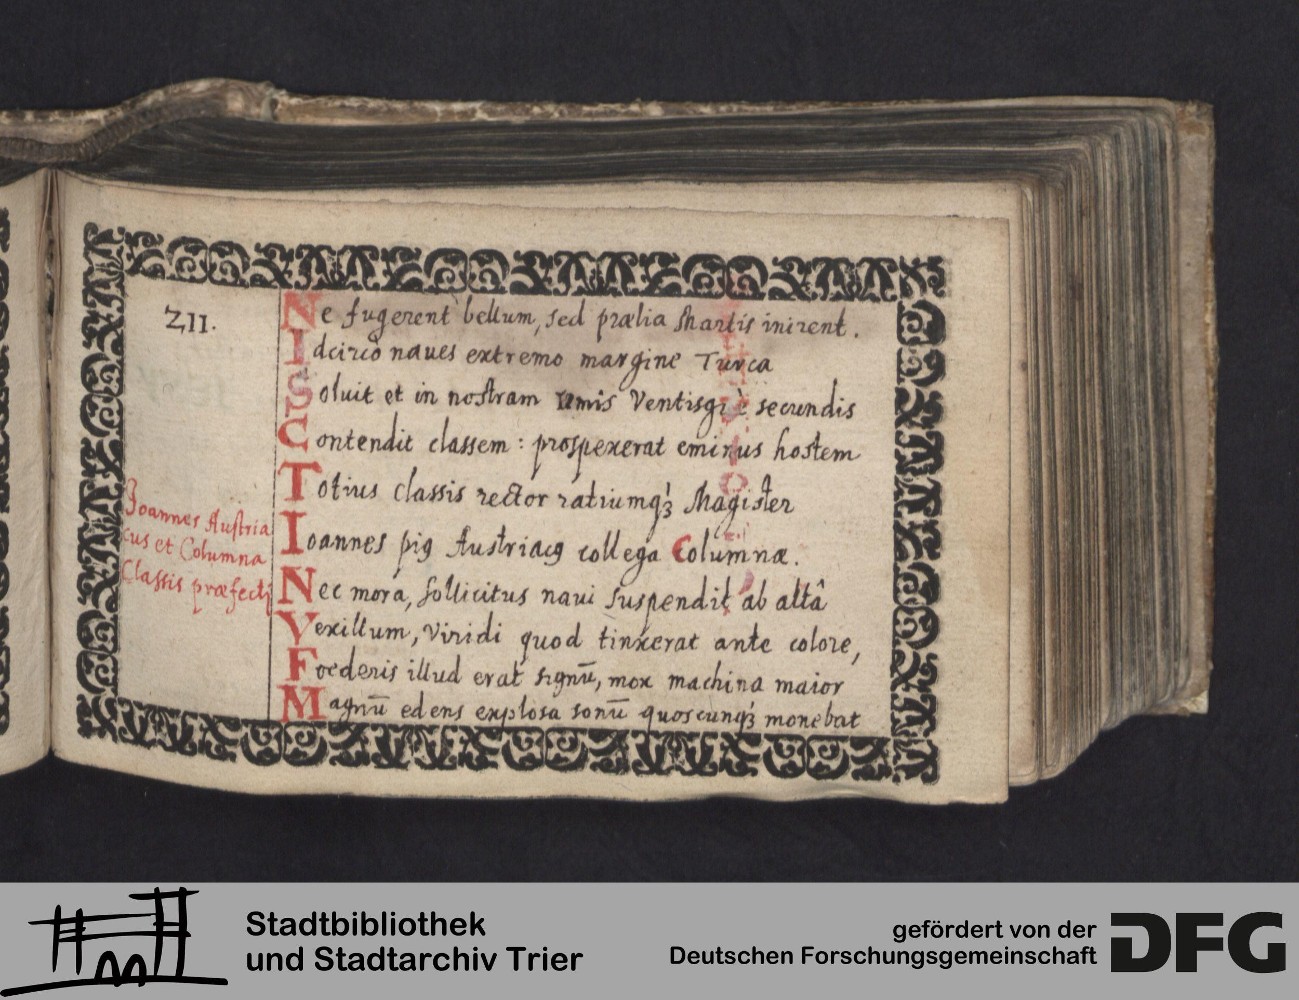 211.
Ne fugerent bellum, sed prælia Martis inirent.
Idcirco naues extremo margine Turca
Soluit et in nostram remis Ventisqꝫ secundis
Contendit classem: prospexerat eminus hostem
Totius classis rector ratiumqꝫ Magister
Ioannes piꝰ Austriacꝰ collega Columnæ.
Joannes Austria
cus et Columna
Classis præfecti
Nec mora, sollicitus naui suspendit ab altâ
Vexillum, viridi quod tinxerat ante colore,
Foederis illud erat signū, mox machina maior
Magnū edens explosa sonū quoscunqꝫ monebat
Stadtbibliothek
und Stadtarchiv Trier
gefördert von der
Deutschen Forschungsgemeinschaft
DFG